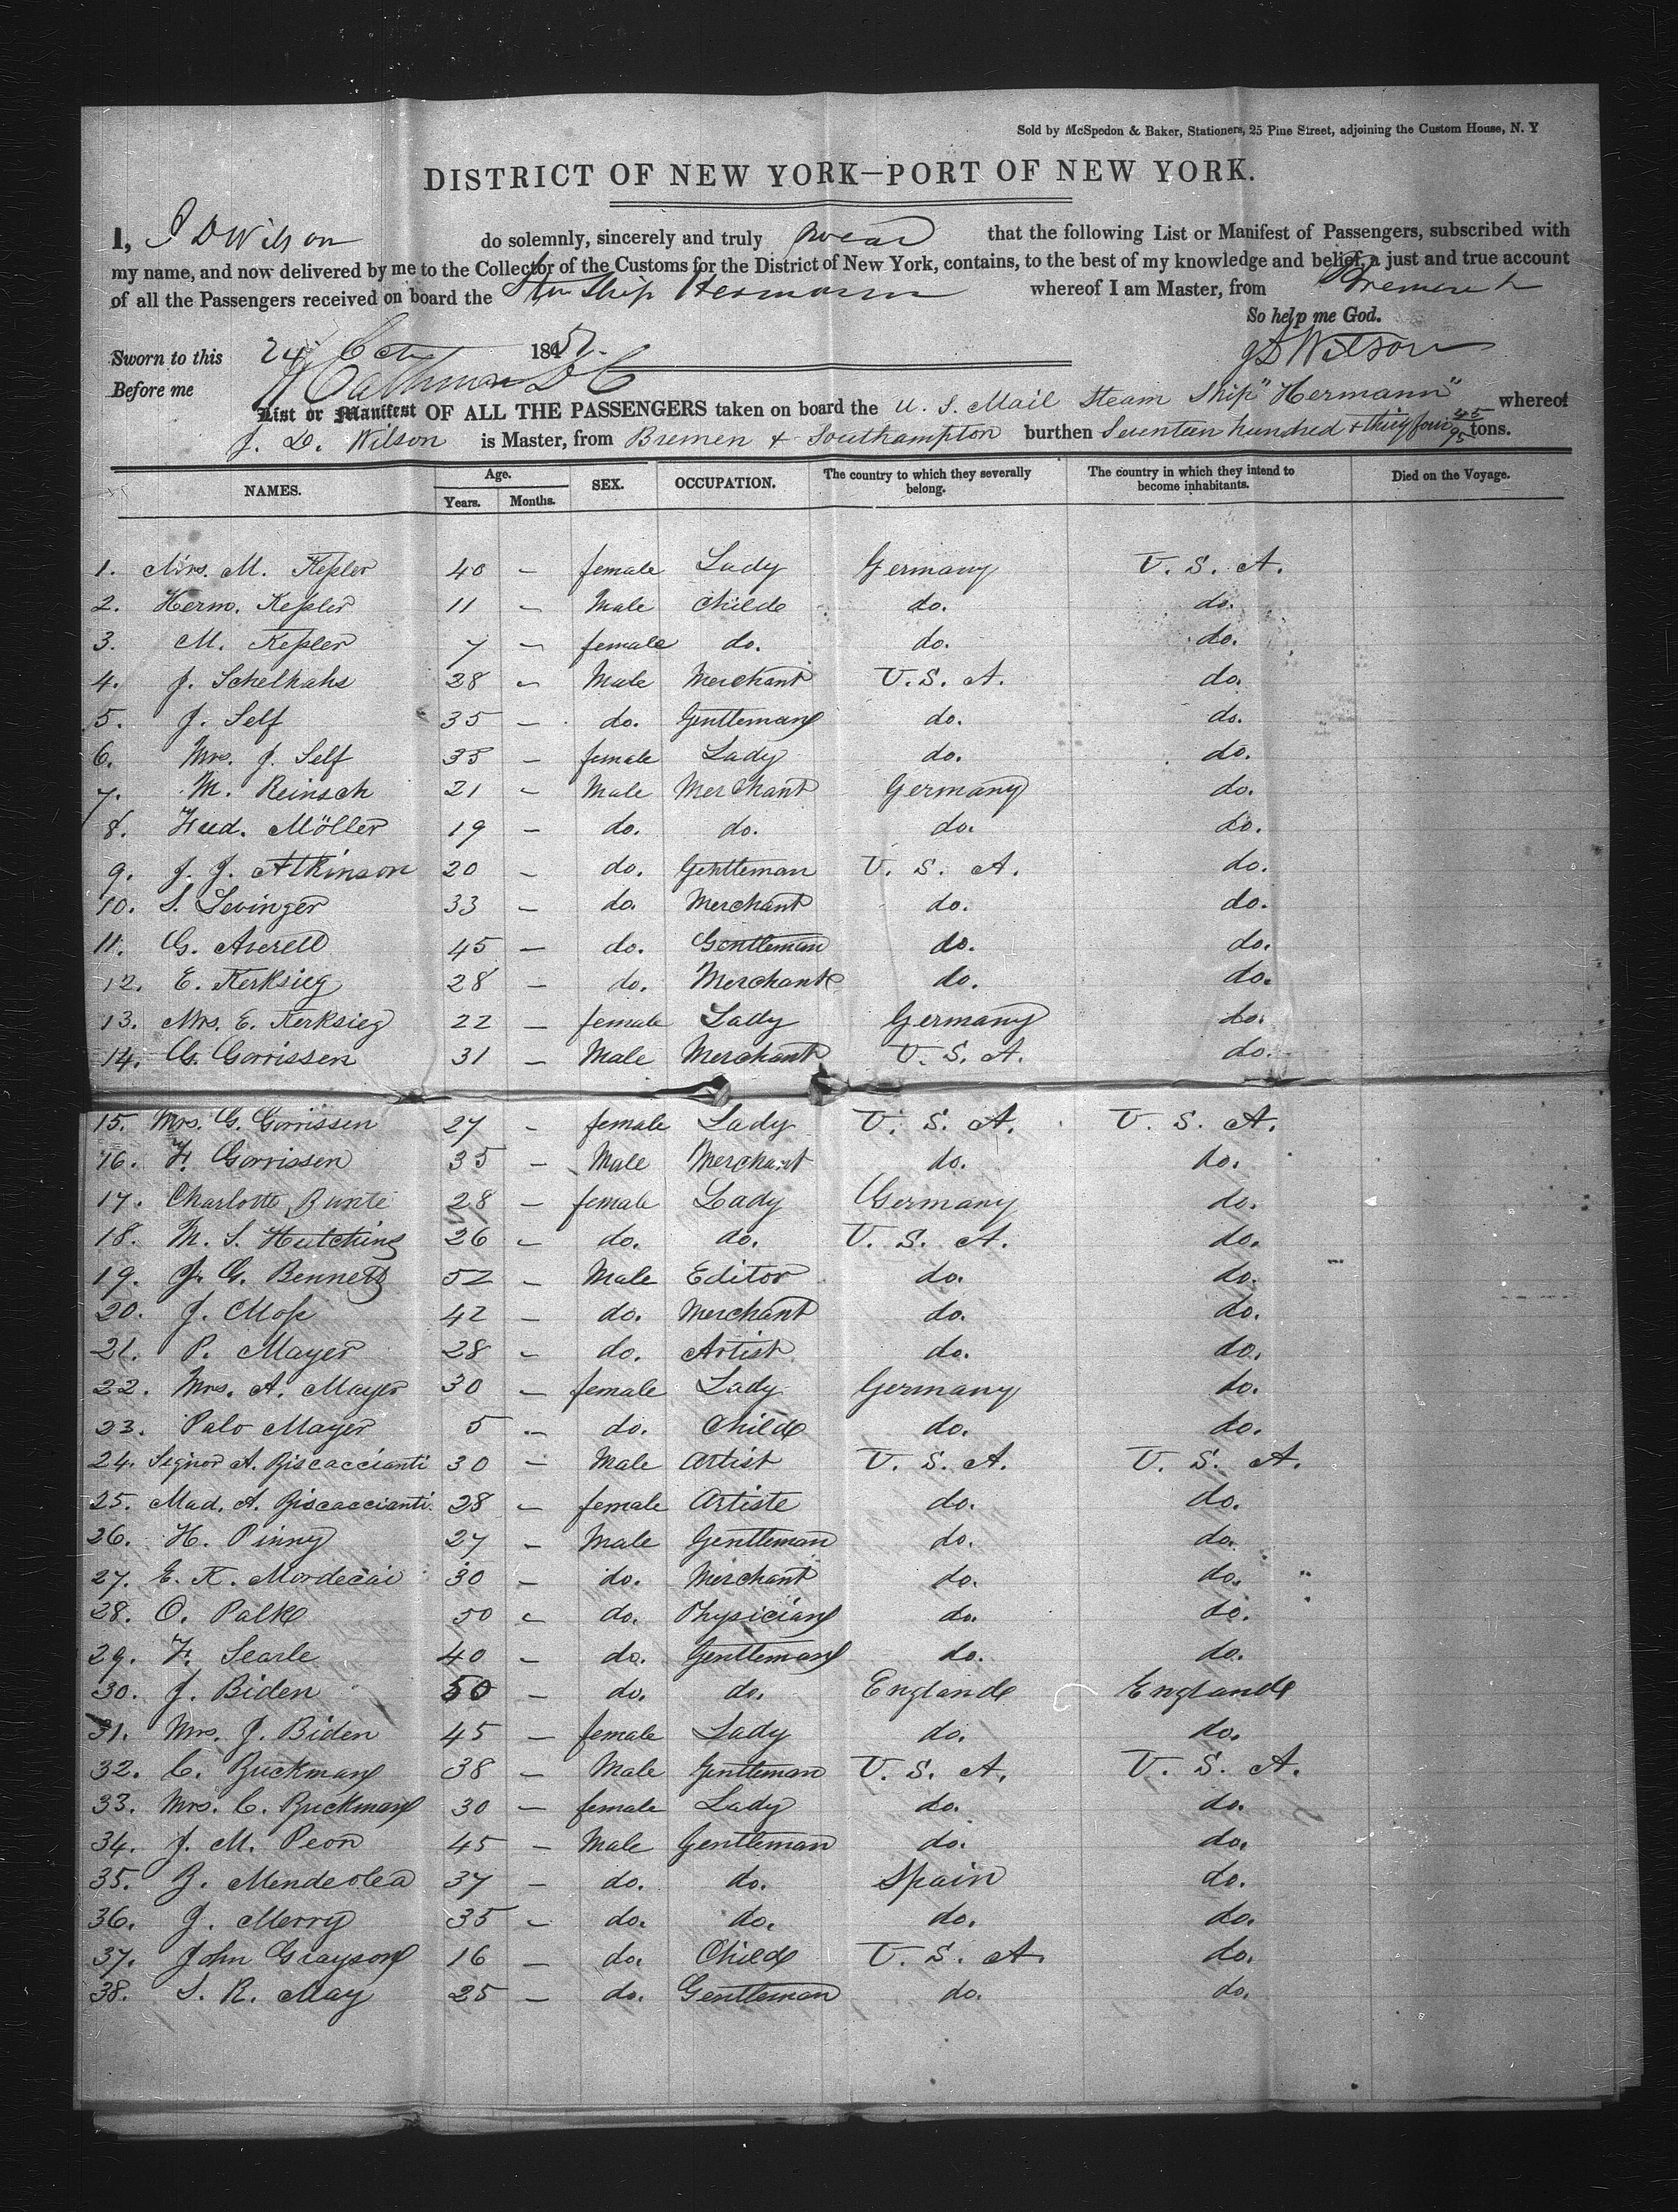 Sold by McSpedon & Baker, Stationers, 25 Pine Street, adjoining the Custom House, N. Y
DISTRICT OF NEW YORK—PORT OF NEW YORK.
I, J D Wilson do solemnly, sincerely and truly swear that the following List or Manifest of Passengers, subscribed with
my name, and now delivered by me to the Collector of the Customs for the District of New York, contains, to the best of my knowledge and belief, a just and true account
of all the Passengers received on board the Stm Ship Hermann whereof I am Master, from Bremen
So help me God.
Sworn to this 24 Oct 1851. J D Wilson
Before me
List or Manifest OF ALL THE PASSENGERS taken on board the U. S. Mail Steam Ship "Hermann" whereof
J. D. Wilson is Master, from Bremen & Southampton burthen Seventeen hundred & thirty four 45/95 tons.
NAMES. Age. Years. Months. SEX. OCCUPATION. The country to which they severally belong. The country in which they intend to become inhabitants. Died on the Voyage.
1. Mrs. M. Keßler 40 – female Lady Germany U. S. A.
2. Herm. Keßler 11 – Male Child do. do.
3. M. Keßler 7 – female do. do. do.
4. J. Schelhahs 28 – Male Merchant U. S. A. do.
5. J. Self 35 – do. Gentleman do. do.
6. Mrs. J. Self 35 – female Lady do. do.
7. M. Reinsch 21 – Male Merchant Germany do.
8. Fred. Möller 19 – do. do. do. do.
9. J. J. Atkinson 20 – do. Gentleman U. S. A. do.
10. S. Levinger 33 – do. Merchant do. do.
11. G. Averell 45 – do. Gentleman do. do.
12. E. Kerksieg 28 – do. Merchant do. do.
13. Mrs. E. Kerksieg 22 – female Lady Germany do.
14. G. Gorrissen 31 – Male Merchant U. S. A. do.
15. Mrs. G. Gorrissen 27 – female Lady U. S. A. U. S. A.
16. F. Gorrissen 35 – Male Merchant do. do.
17. Charlotte Bunte 28 – female Lady Germany do.
18. M. S. Hutching 26 – do. do. U. S. A. do.
19. J. G. Bennett 52 – Male Editor do. do.
20. J. Moß 42 – do. Merchant do. do.
21. P. Mayer 28 – do. Artist do. do.
22. Mrs. A. Mayer 30 – female Lady Germany do.
23. Palo Mayer 5 – do. Child do. do.
24. Signor A. Biscaccianti 30 – Male Artist U. S. A. U. S. A.
25. Mad. A. Biscaccianti 28 – female Artiste do. do.
26. H. Pinny 27 – Male Gentleman do. do.
27. E. K. Mordecai 30 – do. Merchant do. do.
28. O. Palk 50 – do. Physician do. do.
29. F. Searle 40 – do. Gentleman do. do.
30. J. Biden 50 – do. do. England England
31. Mrs. J. Biden 45 – female Lady do. do.
32. C. Buckman 38 – Male Gentleman U. S. A. U. S. A.
33. Mrs. C. Buckman 30 – female Lady do. do.
34. J. M. Peon 45 – Male Gentleman do. do.
35. Z. Mendeolea 37 – do. do. Spain do.
36. J. Merry 35 – do. do. do. do.
37. John Grayson 16 – do. Child U. S. A. do.
38. S. R. May 25 – do. Gentleman do. do.